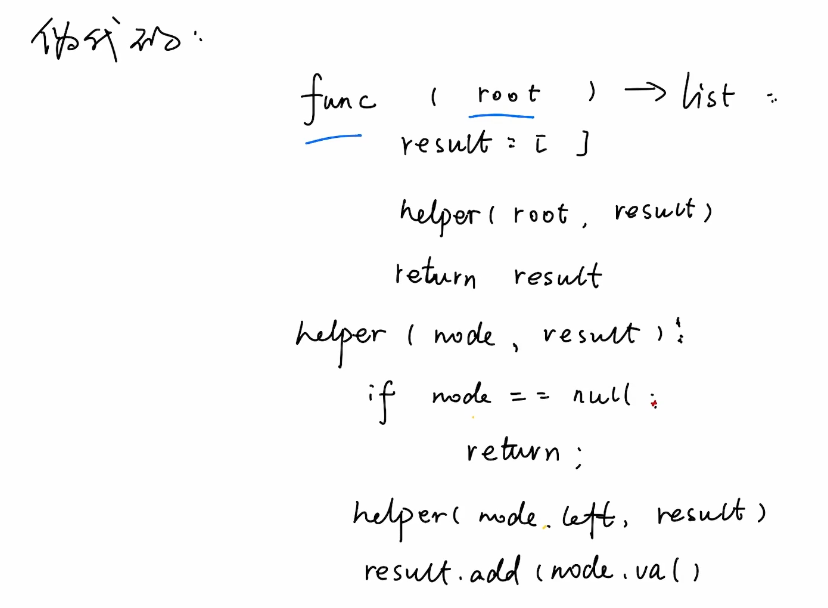 伪代码:
func ( root ) → list :
result = [ ]
helper( root, result)
return result
helper ( node, result ) :
if node == null :
return ;
helper( node.left, result)
result.add (node.val)